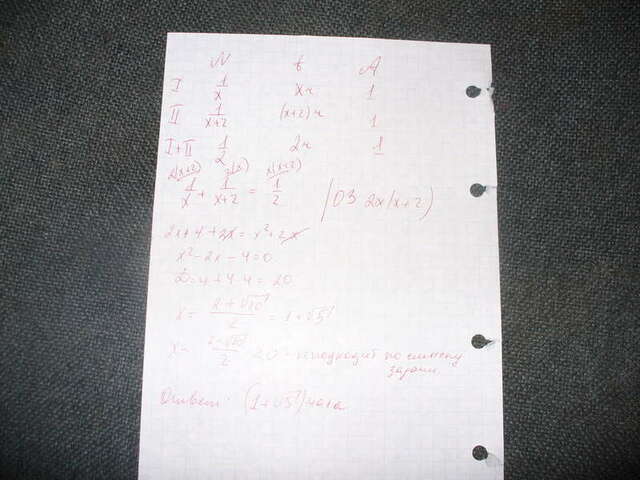 N t A
I 1/x xч 1
II 1/(x+2) (x+2)ч 1
I+II 1/2 2ч 1
2(x+2) 2(x) x(x+2)
1/x + 1/(x+2) = 1/2 (ОЗ 2x(x+2)
2x+4+2x = x²+2x
x²-2x-4=0
D=4+4·4=20
x= (2+√20)/2 = 1+√5
x= (2-√20)/2 <0 - не подходит по смыслу
задачи.
Ответ: (1+√5) часа